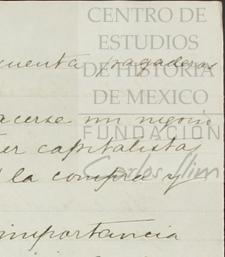 CENTRO DE
ESTUDIOS
DE HISTORIA
DE MEXICO
FUNDACIÓN
Carlos Slim
cuenta pagaderos
acerse un negocio
er capitalistas
la compra y
importancia